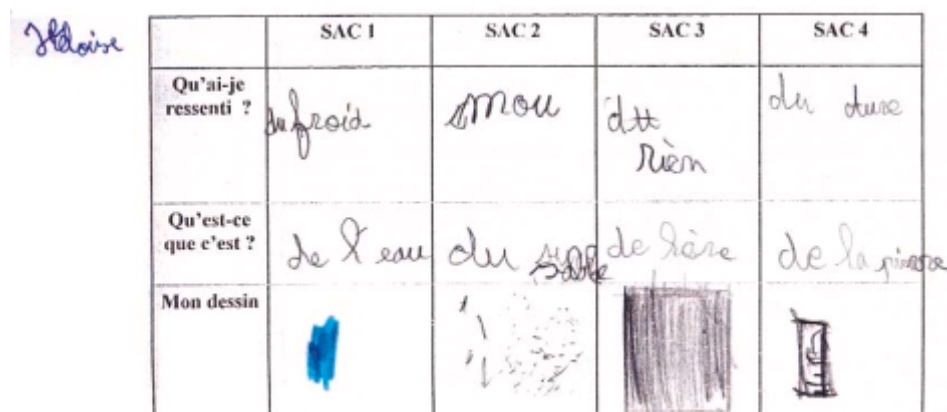 Héloïse
SAC 1 SAC 2 SAC 3 SAC 4
Qu'ai-je ressenti ? du froid mou du dure
rièn
Qu'est-ce que c'est ? de l'eau du sable de l'ère de la pierre
Mon dessin